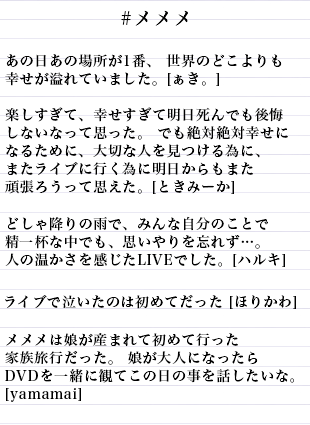 #メメメ
あの日あの場所が1番、 世界のどこよりも
幸せが溢れていました。[ぁき。]
楽しすぎて、幸せすぎて明日死んでも後悔
しないなって思った。 でも絶対絶対幸せに
なるために、大切な人を見つける為に、
またライブに行く為に明日からもまた
頑張ろうって思えた。[ときみーか]
どしゃ降りの雨で、みんな自分のことで
精一杯な中でも、思いやりを忘れず…。
人の温かさを感じたLIVEでした。[ハルキ]
ライブで泣いたのは初めてだった [ほりかわ]
メメメは娘が産まれて初めて行った
家族旅行だった。 娘が大人になったら
DVDを一緒に観てこの日の事を話したいな。
[yamamai]